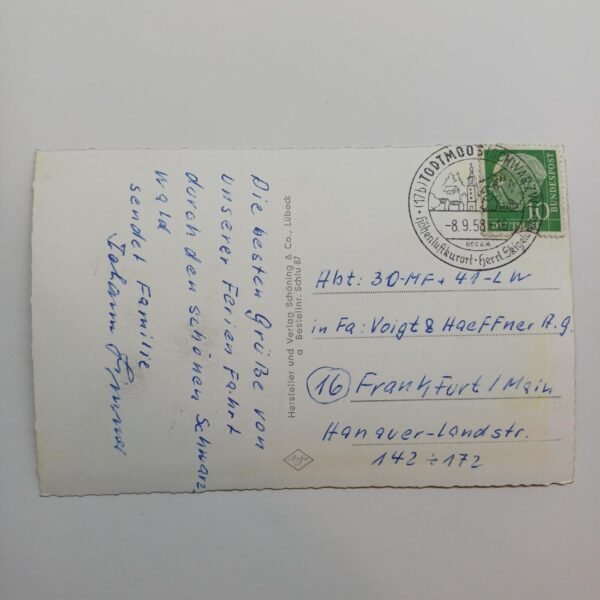 Die besten Grüße von
unserer Ferienfahrt
durch den schönen Schwarz,
wald
sendet Familie
Johann
Hersteller und Verlag Schöning & Co., Lübeck
a Bestellnr. Schlu 87
Agfa
(17b) TODTMOOS (SCHWARZW)
-8.9.58
Höhenluftkurort · Herrl. Skigel
10
BUNDESPOST
Abt: 30-MF + 41-LW
in Fa: Voigt & Haeffner A.g.
(16) Frankfurt/Main
Hanauer-Landstr.
142 ÷ 172